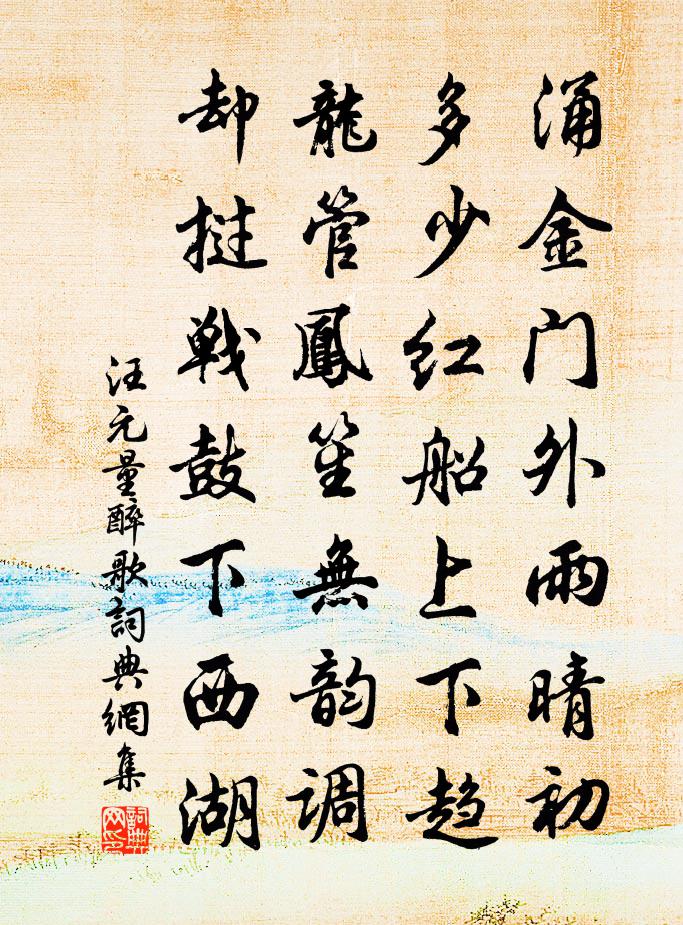 涌金门外雨晴初
多少红船上下趋
龍管鳳笙無韵调
却挝戰鼓下西湖
汪元量醉歌詞典網集
詞典网印